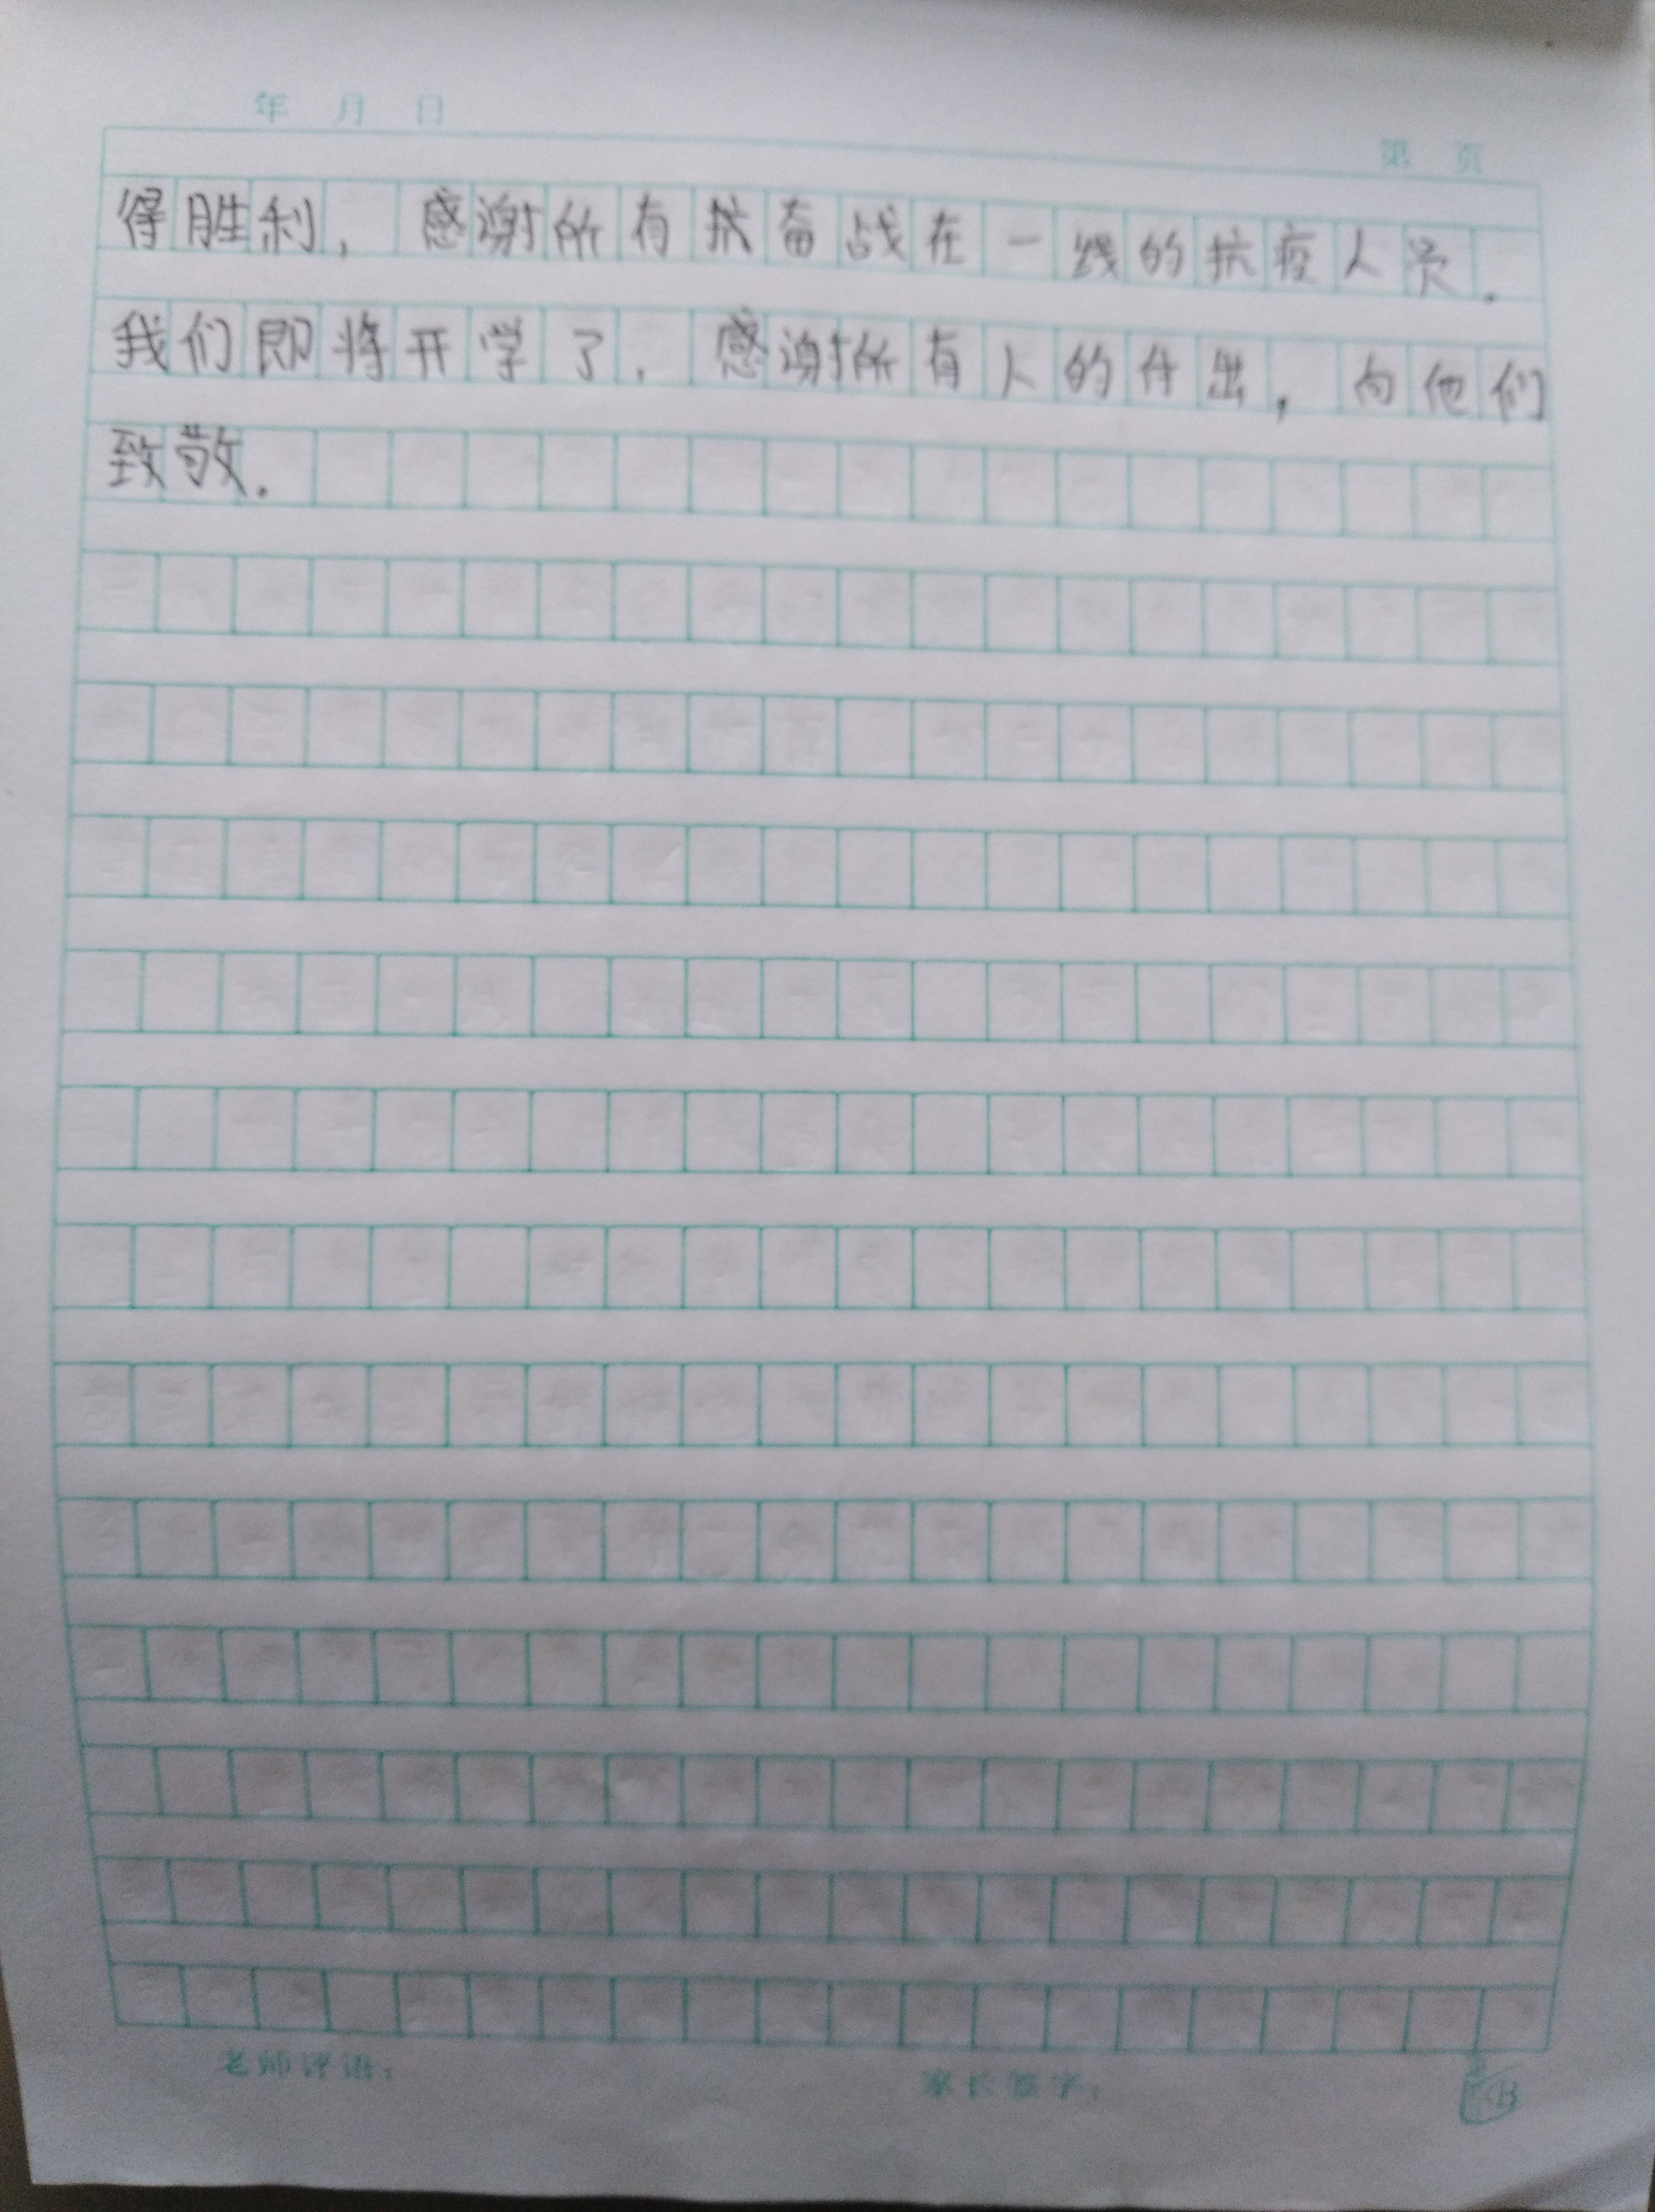 年 月 日
第 页
得胜利，感谢所有抗奋战在一线的抗疫人员.
我们即将开学了，感谢所有人的付出，向他们
致敬.
老师评语：
家长签字：